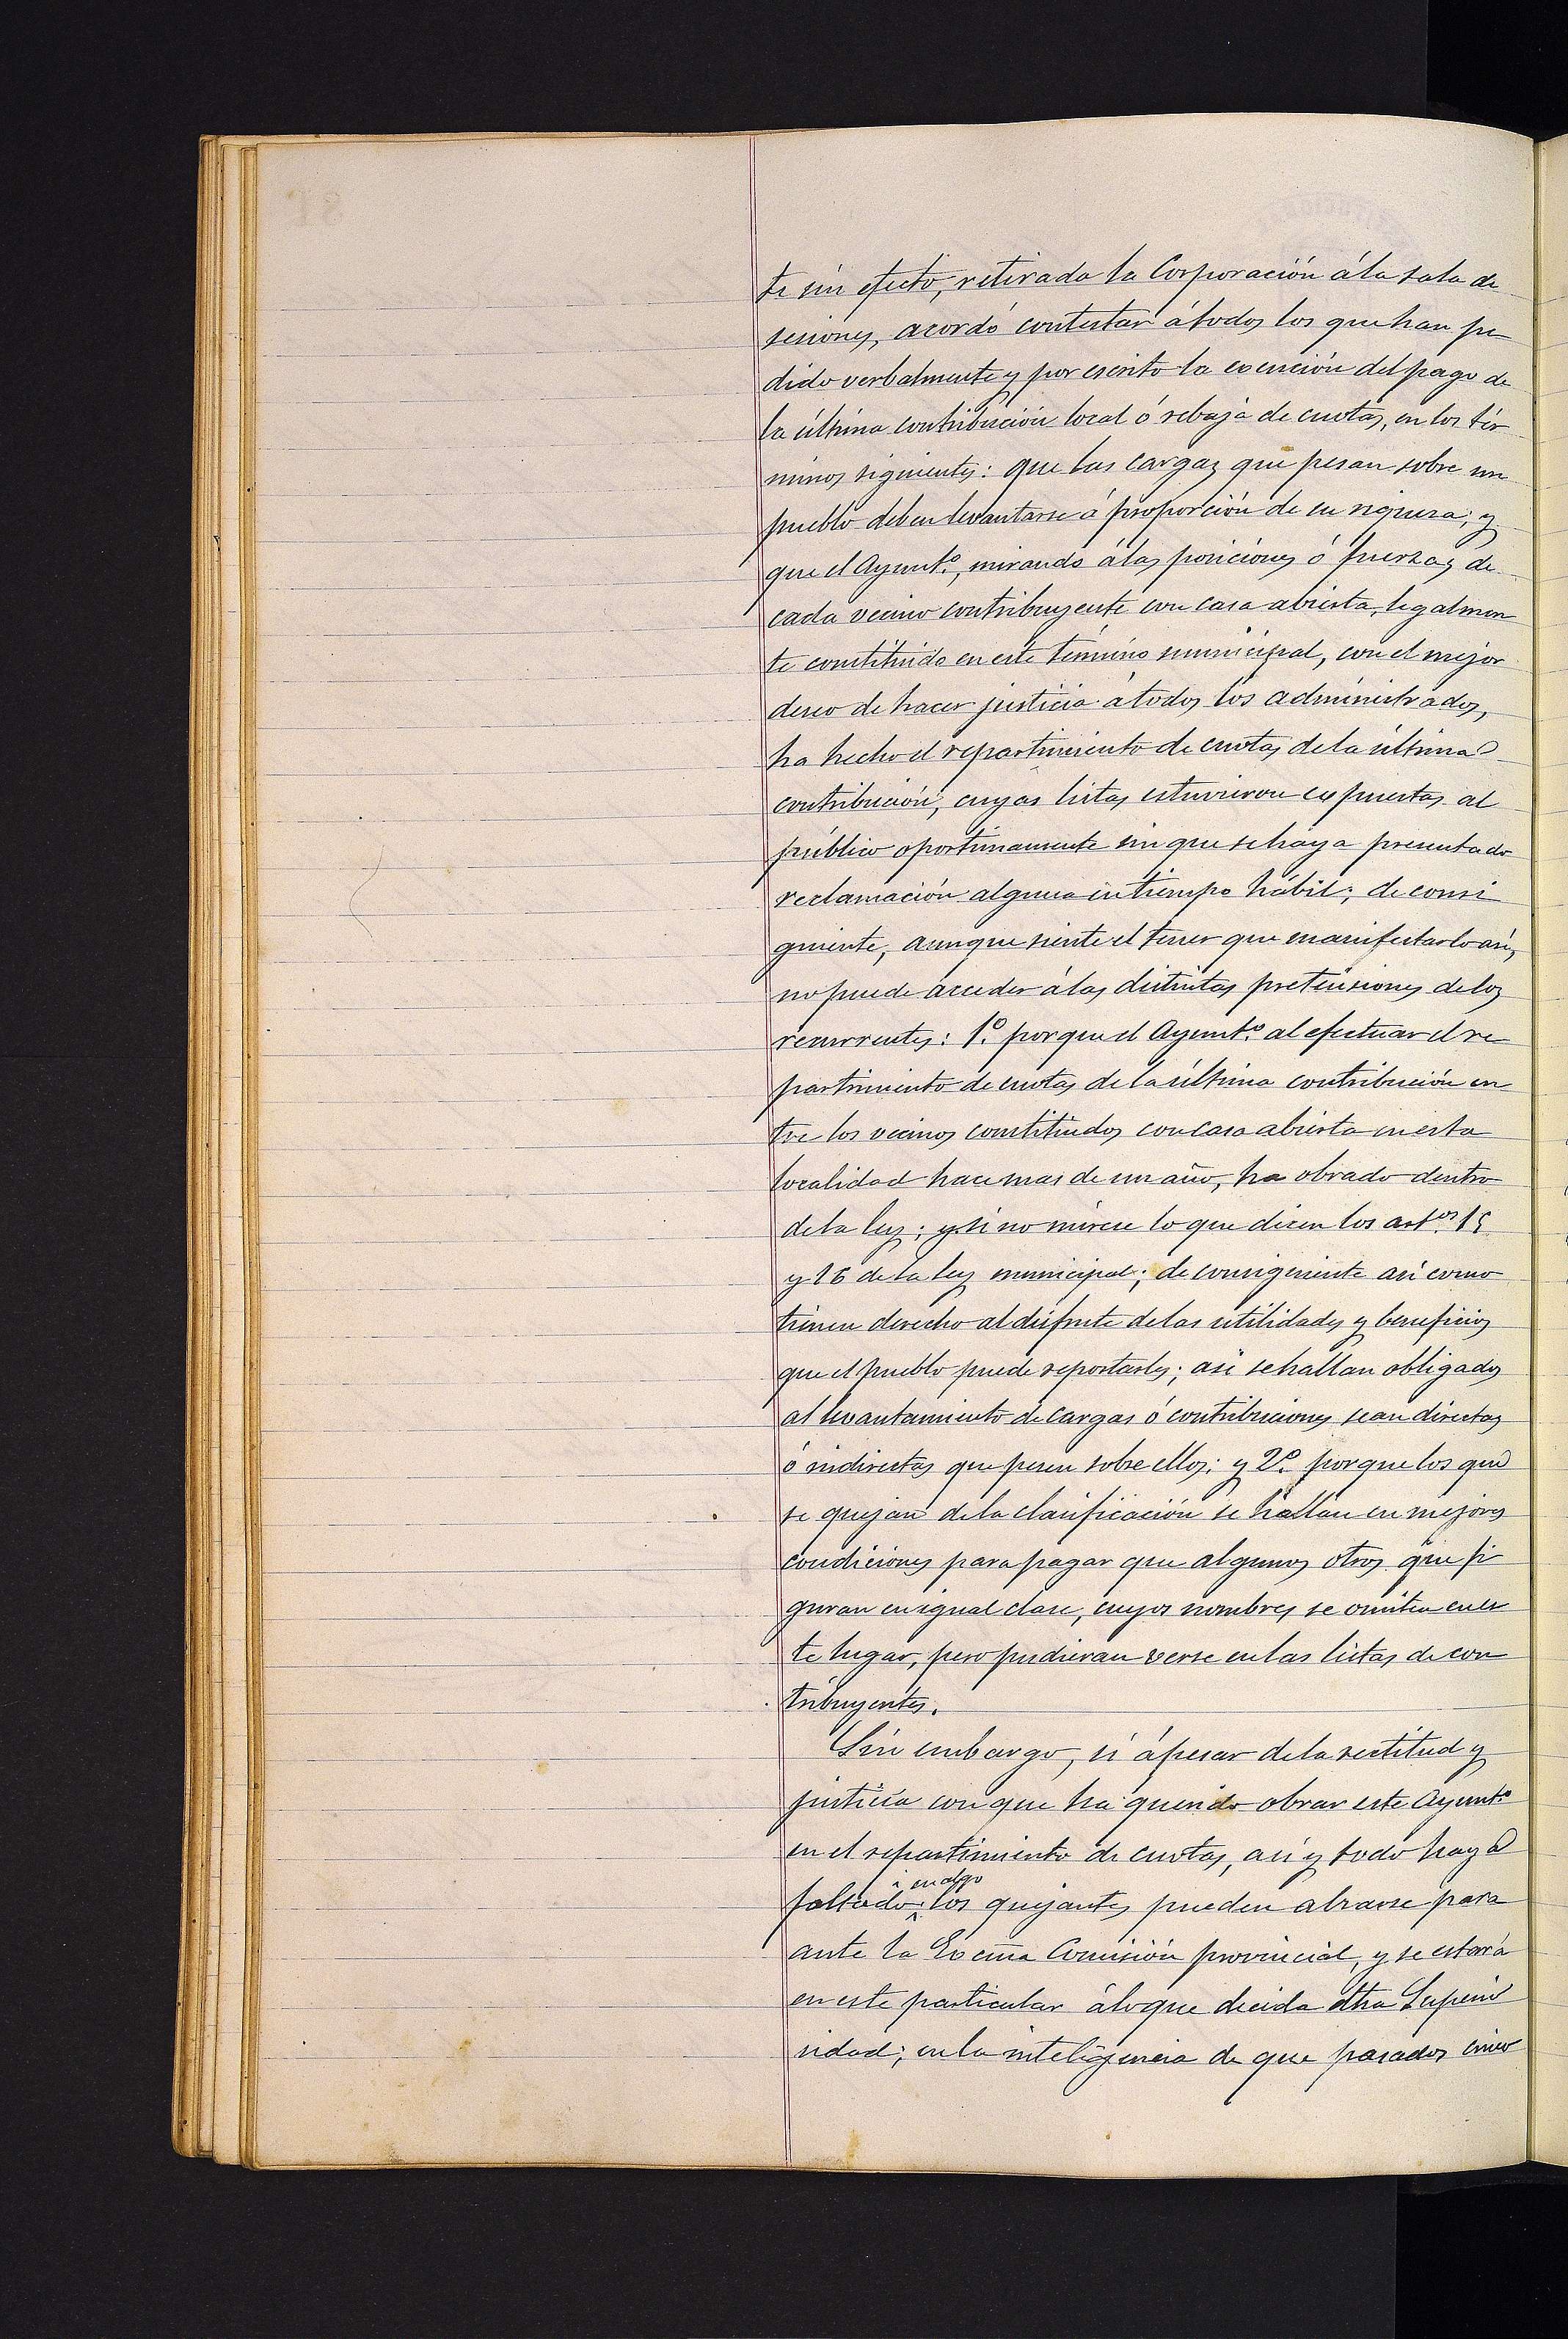 te sin efecto, retirada la Corporación á la sala de
sesiones, acordó contestar á todos los que han pe
dido verbalmente y por escrito la exención del pago de
la última contribución local ó rebaja de cuotas, en los tér
minos siguientes: que las cargas que pesan sobre un
pueblo deben levantarse á proporción de su riqueza; y
que el Ayunt.º, mirando á las posiciones ó fuerzas de
cada vecino contribuyente con casa abierta, legalmen
te constituido en este término municipal, con el mejor
deseo de hacer justicia á todos los administrados,
ha hecho el repartimiento de cuotas de la última
contribución, cuyas listas estuvieron expuestas al
público oportunamente sin que se haya presentado
reclamación alguna en tiempo hábil; de consi
guiente, aunque siente el tener que manifestarlo así,
no puede acceder á las distintas pretensiones de los
recurrentes: 1.º porque el Ayunt.º al efectuar el re
partimiento de cuotas de la última contribución en
tre los vecinos constituidos con casa abierta en esta
localidad hace mas de un año, ha obrado dentro
de la ley; y si no mírese lo que dicen los art.os 15
y 26 de la ley municipal; de consiguiente así como
tienen derecho al disfrute de las utilidades y beneficios
que el pueblo puede reportarles; así se hallan obligados
al levantamiento de cargas ó contribuciones sean directas
ó indirectas que pesen sobre ellos; y 2.º porque los que
se quejan de la clasificación se hallan en mejores
condiciones para pagar que algunos otros que fi
guran en igual clase, cuyos nombres se omiten en es
te lugar, pero pudieran verse en las listas de con
tribuyentes.
Sin embargo, si á pesar de la rectitud y
justicia con que ha querido obrar este Ayunt.º
en el repartimiento de cuotas, así y todo haya
en algo
faltado; los quejantes pueden alzarse para
ante la Excma Comisión provincial, y se estará
en este particular á lo que decida dha Superio
ridad; en la inteligencia de que pasados cinco